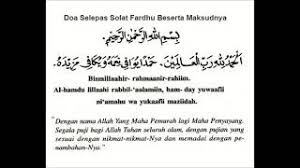 Doa Selepas Solat Fardhu Beserta Maksudnya
بِسْمِ اللهِ الرَّحْمٰنِ الرَّحِيْمِ.
اَلْحَمْدُ لِلّٰهِ رَبِّ الْعَالَمِيْنَ. حَمْدًا يُوَافِي نِعَمَهُ وَيُكَافِي مَزِيْدَهُ.
Bismillaahir- rahmaanir-rahiim.
Al-hamdu lillaahi rabbil-'aalamiin, ham- day yuwaafii
ni'amahu wa yukaafii maziidah.
"Dengan nama Allah Yang Maha Pemurah lagi Maha Penyayang.
Segala puji bagi Allah Tuhan seluruh alam, dengan pujian yang
sesuai dengan nikmat-nikmat-Nya dan memadai dengan pe-
nambahan-Nya"